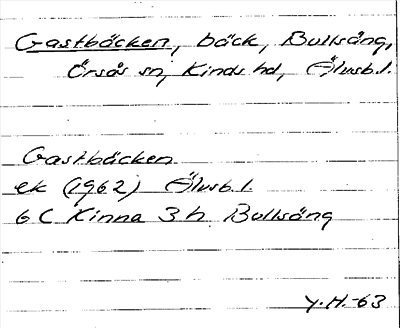 Gastbäcken, bäck, Bullsäng,
Örsås sn, Kinds hd, Älvsb.l.
Gastbäcken
ek (1962) Älvsb.l.
6 C Kinna 3 h Bullsäng
Y.H.-63